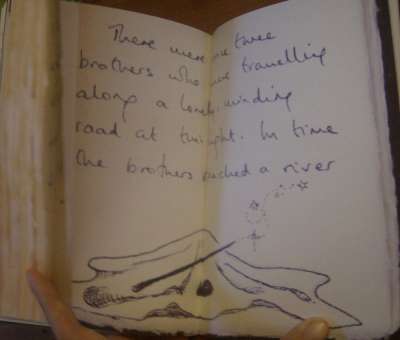 There were once three
brothers who were travelling
along a lonely, winding
road at twilight. In time
the brothers reached a river